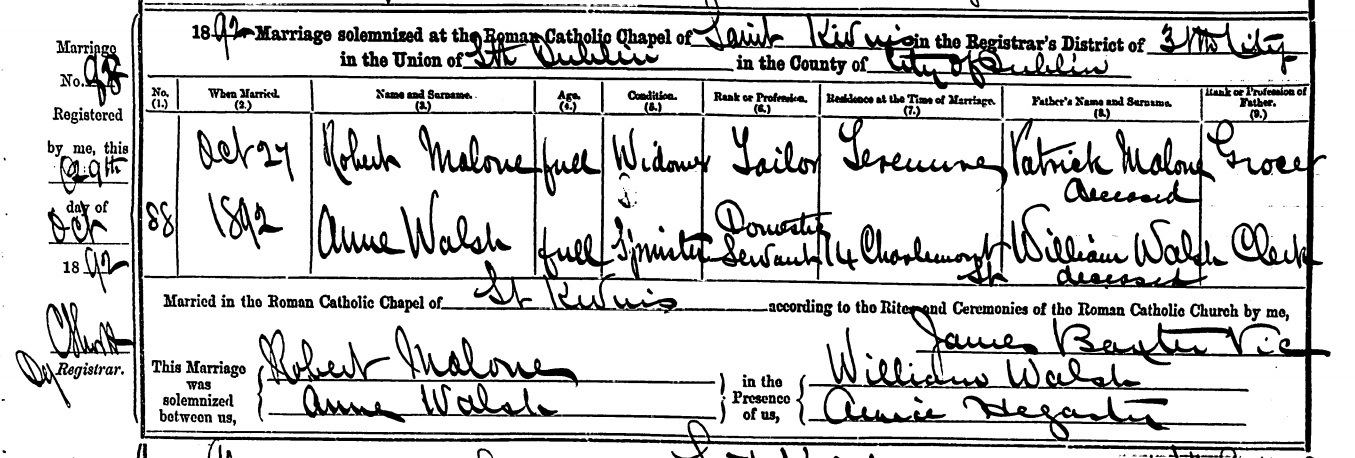 1892 Marriage solemnized at the Roman Catholic Chapel of Saint Kevins in the Registrar's District of 3 Sth City
in the Union of Sth Dublin in the County of City of Dublin
Marriage
No. 88
Registered
by me, this
29th
day of
Oct
1892
Registrar.
No. (1.) When Married. (2.) Name and Surname. (3.) Age. (4.) Condition. (5.) Rank or Profession. (6.) Residence at the Time of Marriage. (7.) Father's Name and Surname. (8.) Rank or Profession of Father. (9.)
88 Oct 27 1892
Robert Malone full Widower Tailor Terenure Patrick Malone deceased Grocer
Anne Walsh full Spinster Domestic Servant 14 Charlemont St William Walsh deceased Clerk
Married in the Roman Catholic Chapel of St Kevins according to the Rites and Ceremonies of the Roman Catholic Church by me,
James Baxter
This Marriage was solemnized between us,
Robert Malone
Anne Walsh
in the Presence of us,
William Walsh
Annie